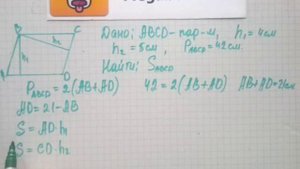 B
h₂
h₁
D
Дано: ABCD - пар-м, h₁ = 4см
h₂ = 5см, P_ABCD = 42см.
Найти: S_ABCD
P_ABCD = 2(AB+AD) 42 = 2(AB+AD) AB+AD=21см
AD = 21-AB
S = AD·h₁
S = CD·h₂